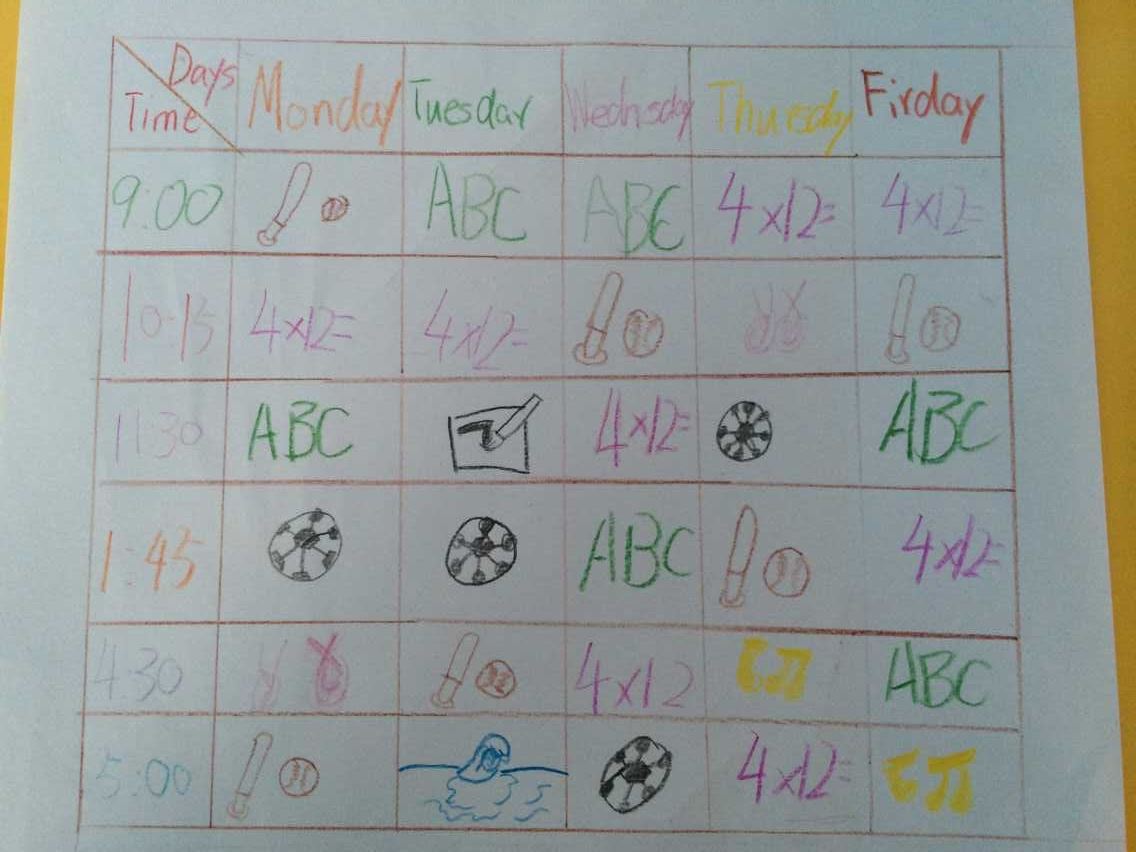 Days
Time Monday Tuesday Wednsday Thursday Firday
9:00 ABC ABC 4×12= 4×12=
10:15 4×12= 4×12=
11:30 ABC 4×12= ABC
1:45 ABC 4×12=
4:30 4×12 ABC
5:00 4×12=